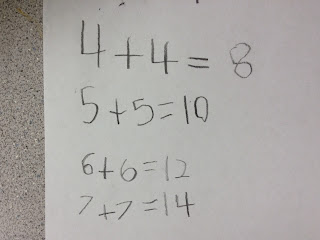 4+4=8
5+5=10
6+6=12
7+7=14